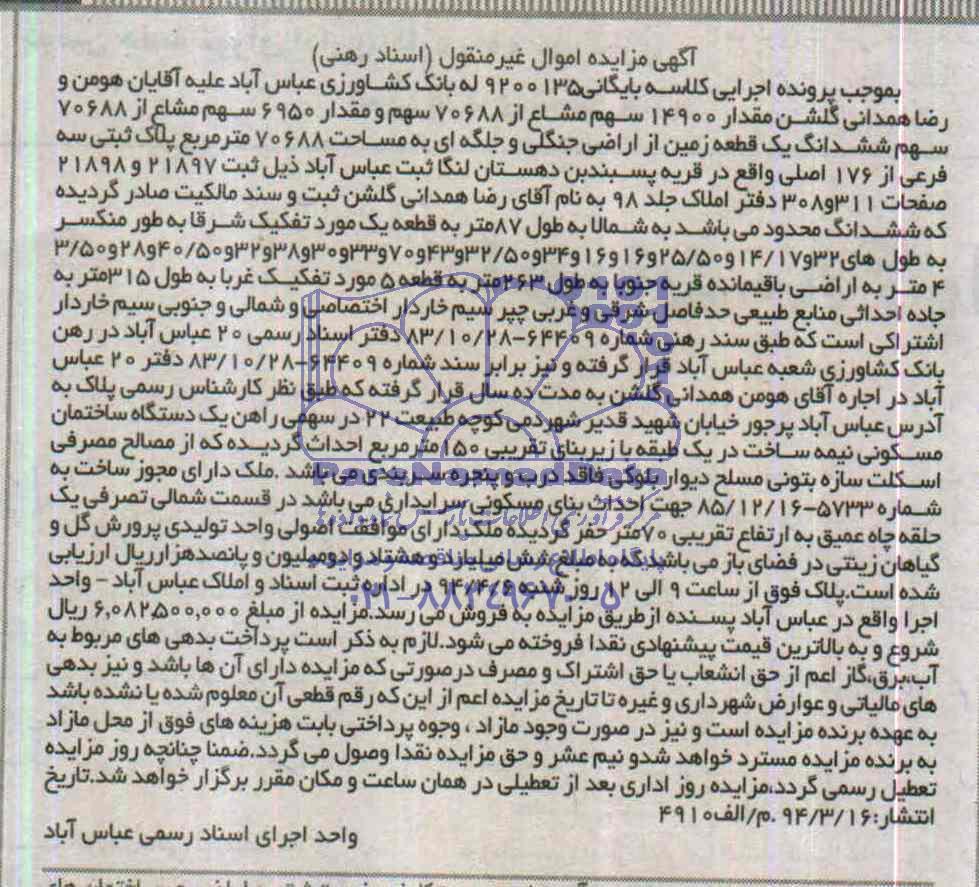 آگهی مزایده اموال غیرمنقول (اسناد رهنی)
بموجب پرونده اجرایی کلاسه بایگانی۹۲۰۰۱۳۵ له بانک کشاورزی عباس آباد علیه آقایان هومن و
رضا همدانی گلشن مقدار ۱۴۹۰۰ سهم مشاع از ۷۰۶۸۸ سهم و مقدار ۶۹۵۰ سهم مشاع از ۷۰۶۸۸
سهم ششدانگ یک قطعه زمین از اراضی جنگلی و جلگه ای به مساحت ۷۰۶۸۸ مترمربع پلاک ثبتی سه
فرعی از ۱۷۶ اصلی واقع در قریه پسبندبن دهستان لنگا ثبت عباس آباد ذیل ثبت ۲۱۸۹۷ و ۲۱۸۹۸
صفحات ۳۱۱و۳۰۸ دفتر املاک جلد ۹۸ به نام آقای رضا همدانی گلشن ثبت و سند مالکیت صادر گردیده
که ششدانگ محدود می باشد به شمالا به طول ۸۷متر به قطعه یک مورد تفکیک شرقا به طور منکسر
به طول های۳۲و۱۴/۱۷و۲۵/۵۰و۱۶و۱۶و۳۴و۳۲/۵۰و۴۳و۷۰و۳۳و۳۰و۳۸و۳۲و۴۰/۵۰و۲۸و۳/۵۰
۴ متر به اراضی باقیمانده قریه جنوبا به طول ۲۶۳متر به قطعه ۵ مورد تفکیک غربا به طول ۳۱۵متر به
جاده احداثی منابع طبیعی حدفاصل شرقی و غربی چپر سیم خاردار اختصاصی و شمالی و جنوبی سیم خاردار
اشتراکی است که طبق سند رهنی شماره ۶۴۴۰۹-۸۳/۱۰/۲۸ دفتر اسناد رسمی ۲۰ عباس آباد در رهن
بانک کشاورزی شعبه عباس آباد قرار گرفته و نیز برابر سند شماره ۶۴۴۰۹-۸۳/۱۰/۲۸ دفتر ۲۰ عباس
آباد در اجاره آقای هومن همدانی گلشن به مدت ده سال قرار گرفته که طبق نظر کارشناس رسمی پلاک به
آدرس عباس آباد پرجور خیابان شهید قدیر شهردمی کوچه طبیعت ۲۲ در سهمی راهن یک دستگاه ساختمان
مسکونی نیمه ساخت در یک طبقه با زیربنای تقریبی ۱۵۰مترمربع احداث گردیده که از مصالح مصرفی
اسکلت سازه بتونی مسلح دیوار بلوکی فاقد درب و پنجره سربندی می باشد .ملک دارای مجوز ساخت به
شماره ۵۷۳۳-۸۵/۱۲/۱۶ جهت احداث بنای مسکونی سرایداری می باشد در قسمت شمالی تصرفی یک
حلقه چاه عمیق به ارتفاع تقریبی ۷۰متر حفر گردیده ملک دارای موافقت اصولی واحد تولیدی پرورش گل و
گیاهان زینتی در فضای باز می باشد که به مبلغ شش میلیارد و هشتاد و دومیلیون و پانصدهزارریال ارزیابی
شده است.پلاک فوق از ساعت ۹ الی ۱۲ روز شنبه ۹۴/۴/۶ در اداره ثبت اسناد و املاک عباس آباد - واحد
اجرا واقع در عباس آباد پسنده ازطریق مزایده به فروش می رسد.مزایده از مبلغ ۶,۰۸۲۵۰۰,۰۰۰ ریال
شروع و به بالاترین قیمت پیشنهادی نقدا فروخته می شود.لازم به ذکر است پرداخت بدهی های مربوط به
آب،برق،گاز اعم از حق انشعاب یا حق اشتراک و مصرف درصورتی که مزایده دارای آن ها باشد و نیز بدهی
های مالیاتی و عوارض شهرداری و غیره تا تاریخ مزایده اعم از این که رقم قطعی آن معلوم شده یا نشده باشد
به عهده برنده مزایده است و نیز در صورت وجود مازاد ، وجوه پرداختی بابت هزینه های فوق از محل مازاد
به برنده مزایده مسترد خواهد شدو نیم عشر و حق مزایده نقدا وصول می گردد.ضمنا چنانچه روز مزایده
تعطیل رسمی گردد،مزایده روز اداری بعد از تعطیلی در همان ساعت و مکان مقرر برگزار خواهد شد.تاریخ
انتشار:۹۴/۳/۱۶ .م/الف۴۹۱۰
واحد اجرای اسناد رسمی عباس آباد